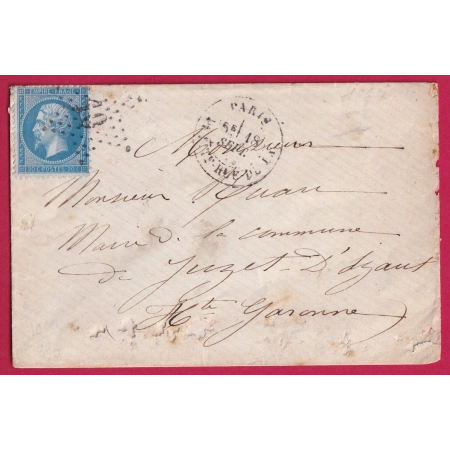 EMPIRE FRANC
20 C POSTES 20 C
PARIS
5E
18
SEPT.
Monsieur
Monsieur
Maire de la commune
de Juzet-D'Izaut
Hte Garonne